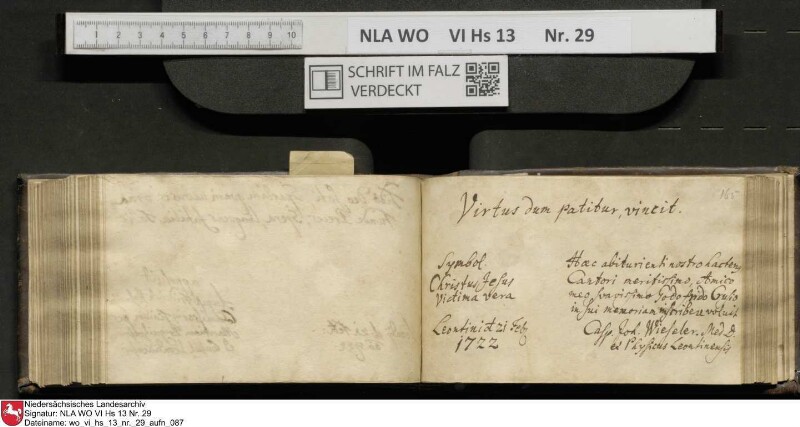 1 2 3 4 5 6 7 8 9 10
NLA WO VI Hs 13 Nr. 29
SCHRIFT IM FALZ
VERDECKT
165
Virtus dum patitur, vincit.
Symbol.
Christus Jesus
victima vera
Leontini d 21 Feb
1722
Hæc abiturienti nostro hactenus
Cantori meritissimo, Amico
meo suavissimo
in sui memoriam inscribere voluit
Casp. Joh. Wieseler. Med. D.
et Physicus Leontinensis
Niedersächsisches Landesarchiv
Signatur: NLA WO VI Hs 13 Nr. 29
Dateiname: wo_vi_hs_13_nr._29_aufn_087